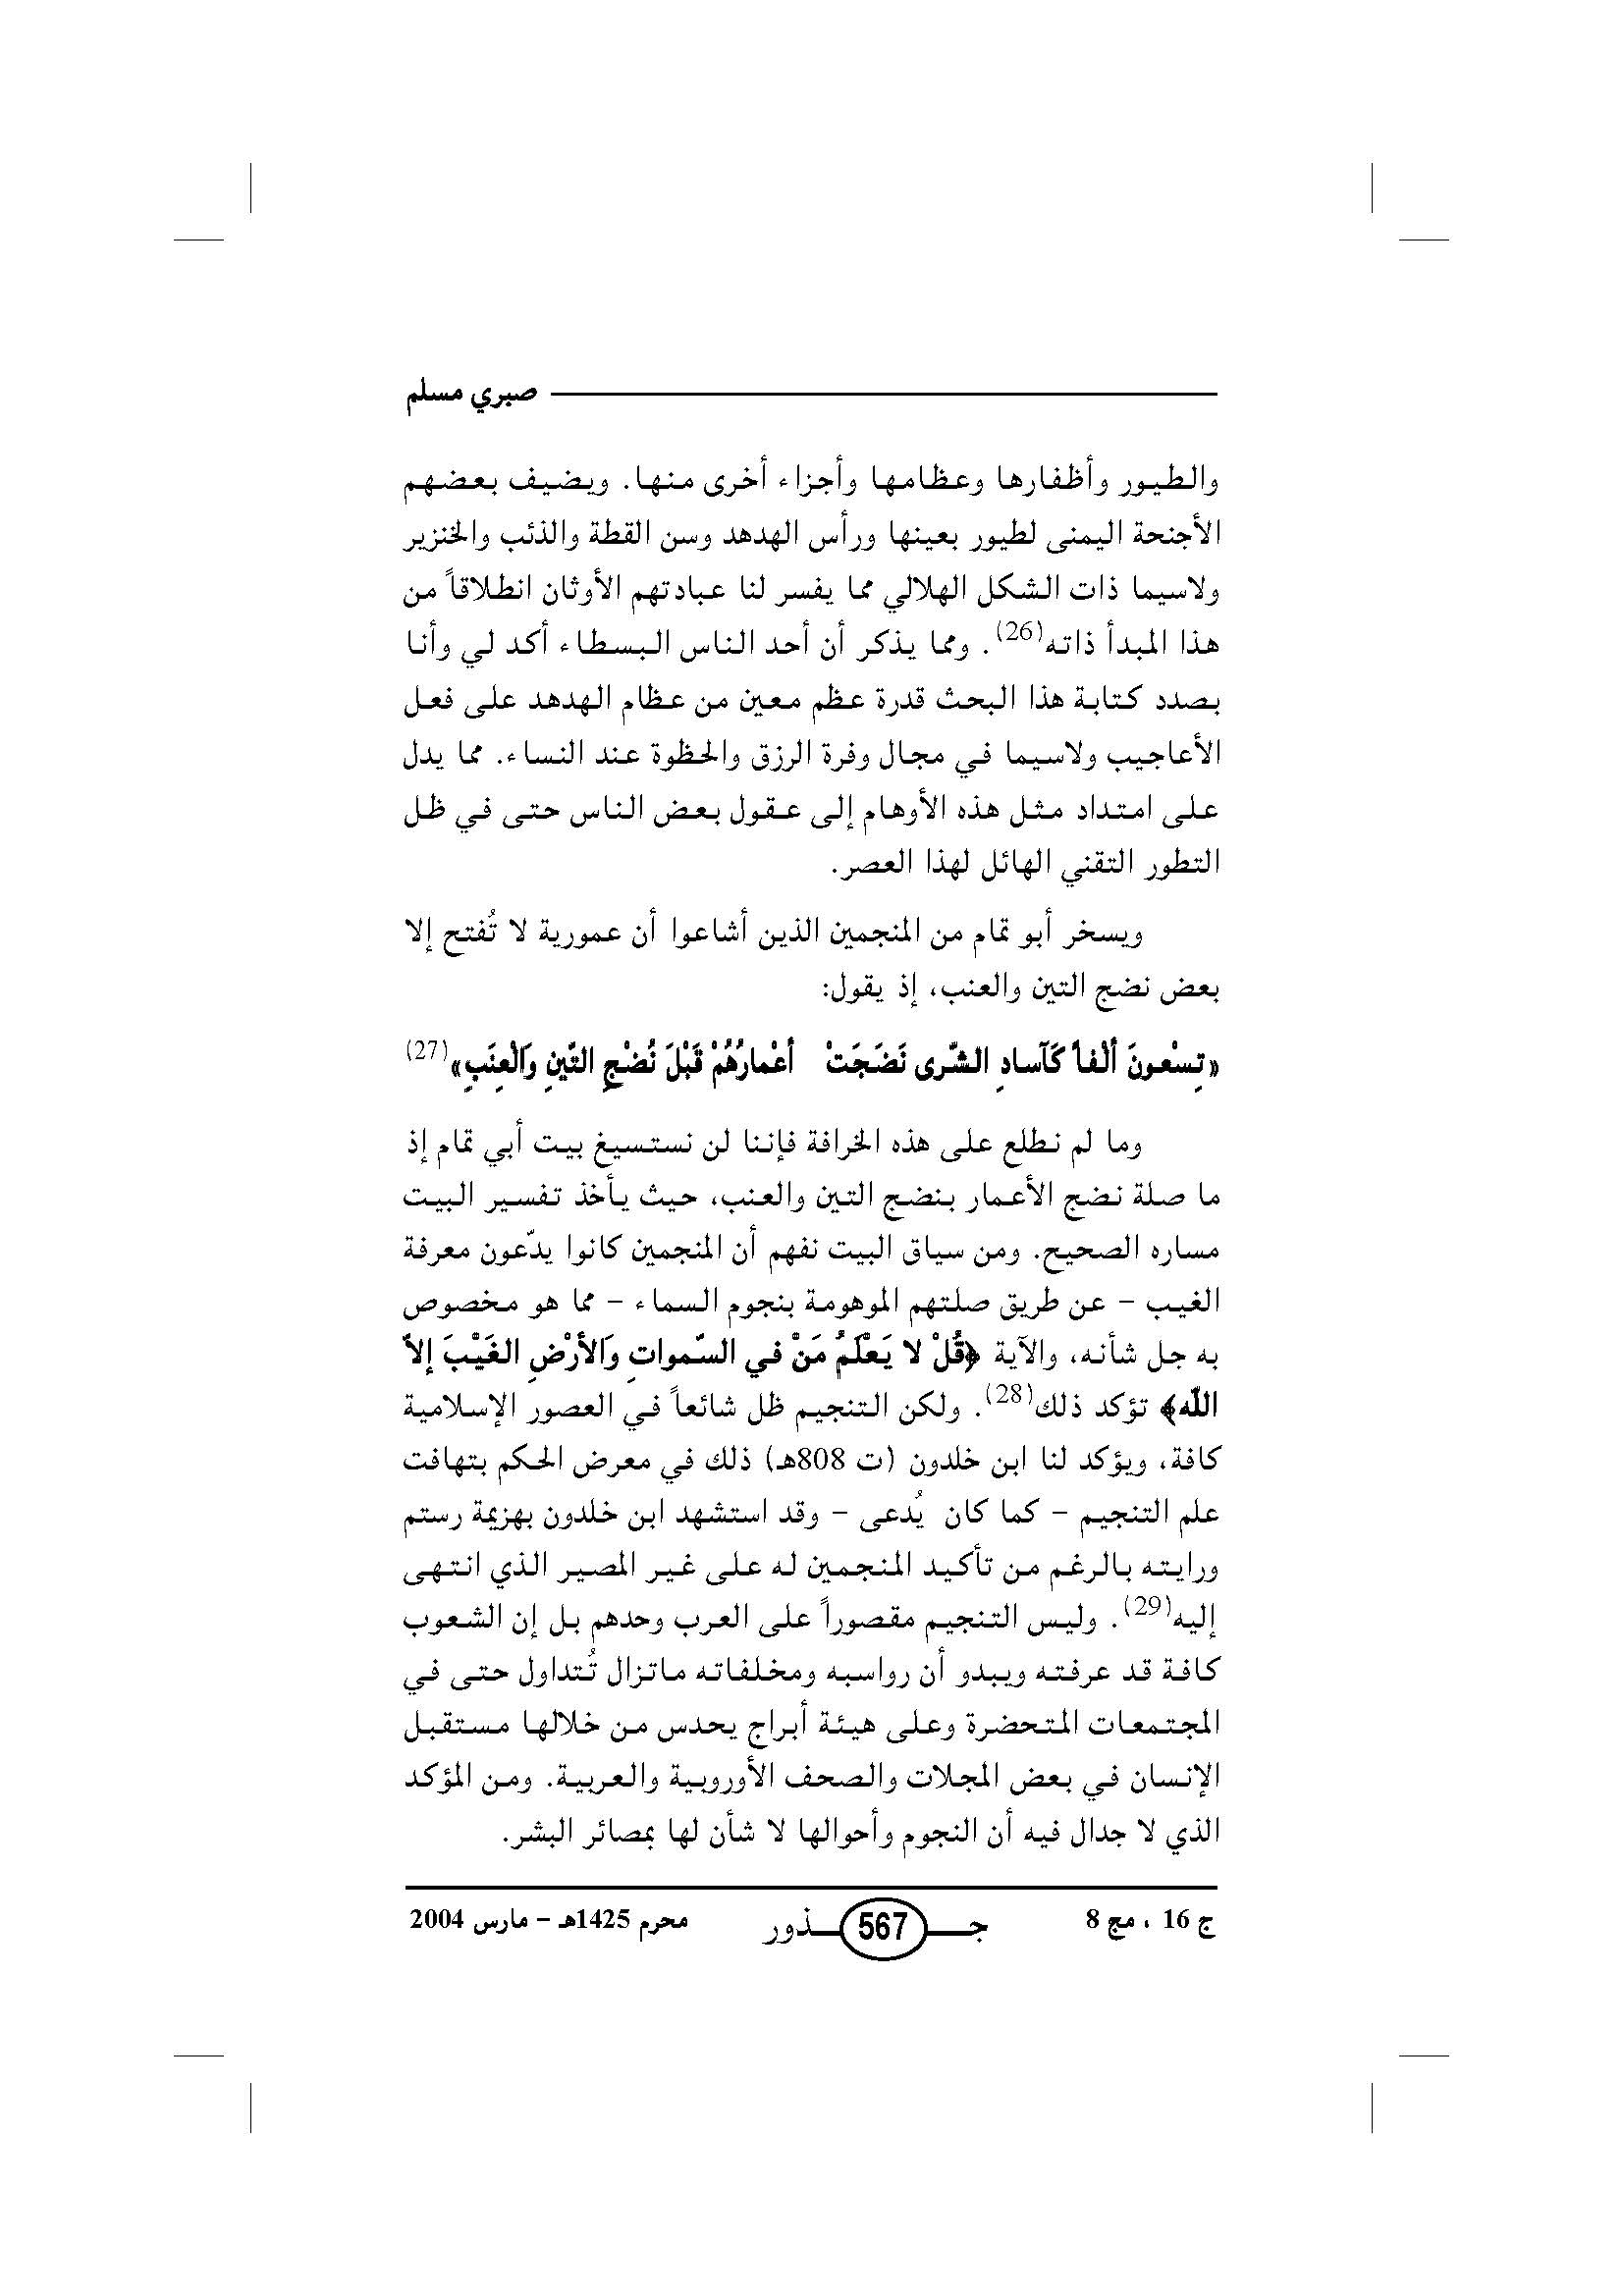 صبري مسلم
والطيور وأظفارها وعظامها وأجزاء أخرى منها. ويضيف بعضهم
الأجنحة اليمنى لطيور بعينها ورأس الهدهد وسن القطة والذئب والخنزير
ولاسيما ذات الشكل الهلالي مما يفسر لنا عبادتهم الأوثان انطلاقاً من
هذا المبدأ ذاته(26). ومما يذكر أن أحد الناس البسطاء أكد لي وأنا
بصدد كتابة هذا البحث قدرة عظم معين من عظام الهدهد على فعل
الأعاجيب ولاسيما في مجال وفرة الرزق والحظوة عند النساء. مما يدل
على امتداد مثل هذه الأوهام إلى عقول بعض الناس حتى في ظل
التطور التقني الهائل لهذا العصر.
ويسخر أبو تمام من المنجمين الذين أشاعوا أن عمورية لا تُفتح إلا
بعض نضج التين والعنب، إذ يقول:
«تِسْعونَ ألْفاً كَآسادِ الشَّرى نَضَجَتْ أعْمارُهُمْ قَبْلَ نُضْجِ التَّينِ وَالْعِنَبِ»(27)
وما لم نطلع على هذه الخرافة فإننا لن نستسيغ بيت أبي تمام إذ
ما صلة نضج الأعمار بنضج التين والعنب، حيث يأخذ تفسير البيت
مساره الصحيح. ومن سياق البيت نفهم أن المنجمين كانوا يدّعون معرفة
الغيب – عن طريق صلتهم الموهومة بنجوم السماء – مما هو مخصوص
به جل شأنه، والآية ﴿قُلْ لا يَعْلَمُ مَنْ في السَّمواتِ وَالأرْضِ الغَيْبَ إلاّ
اللّه﴾ تؤكد ذلك(28). ولكن التنجيم ظل شائعاً في العصور الإسلامية
كافة، ويؤكد لنا ابن خلدون (ت 808هـ) ذلك في معرض الحكم بتهافت
علم التنجيم – كما كان يُدعى – وقد استشهد ابن خلدون بهزيمة رستم
ورايته بالرغم من تأكيد المنجمين له على غير المصير الذي انتهى
إليه(29). وليس التنجيم مقصوراً على العرب وحدهم بل إن الشعوب
كافة قد عرفته ويبدو أن رواسبه ومخلفاته ماتزال تُتداول حتى في
المجتمعات المتحضرة وعلى هيئة أبراج يحدس من خلالها مستقبل
الإنسان في بعض المجلات والصحف الأوروبية والعربية. ومن المؤكد
الذي لا جدال فيه أن النجوم وأحوالها لا شأن لها بمصائر البشر.
ج 16 ، مج 8 جـــذور 567 محرم 1425هـ – مارس 2004